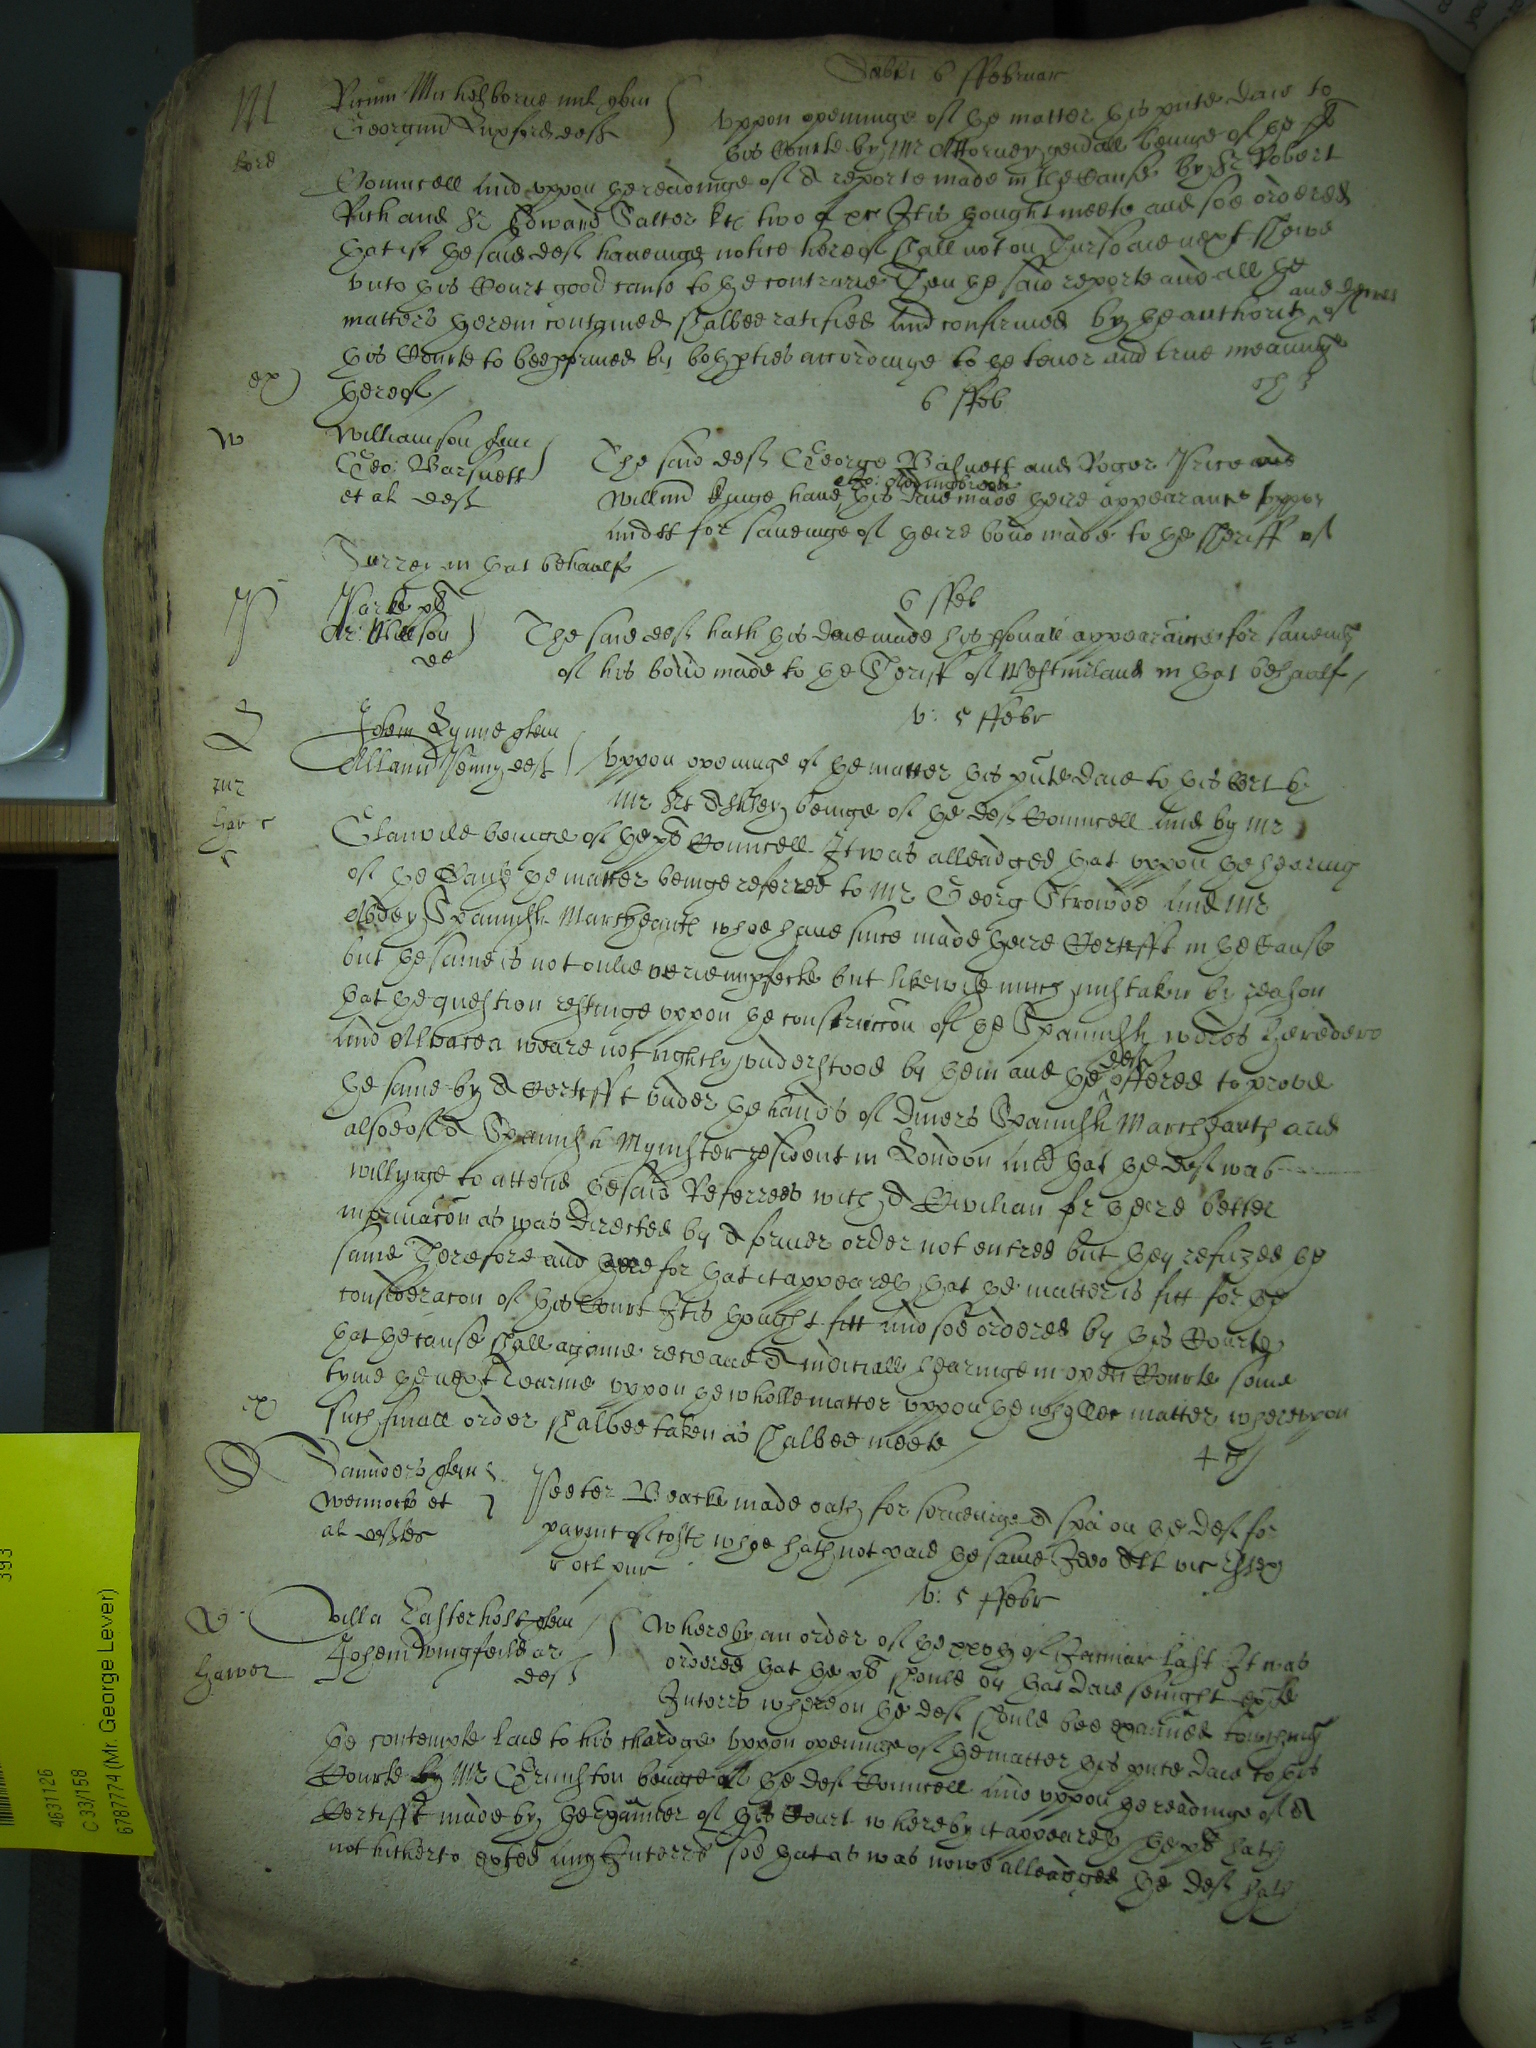 Sabbti 6 ffebruar
M
Ricum Michelborne mil quer
Georgium Luxford deft
Vppon openinge of the matter this pnte daie to
this Courte by Mr Attorney generall beinge of the pl
ford
Councell And vppon the readinge of a reporte made in the Cause by Sr Robert
Rich and Sr Edward Salter kts two of Itis thought meete and soe ordered
that if the said deft haueinge notice hereof shall not on Thursdaie next shewe
vnto this Court good cause to the contrarie Then the said reporte and all the
matters therein conteyned shalbee ratified And confirmed by the authority and decree of
this Courte to bee pformed by both pties accordinge to the tenor and true meaninge
ex
thereof
6 ffeb
W
Williamson quer
Geo: Barsnett
et al deft
The said deft George Barsnett and Roger Price and
Willm kinge haue this daie made theire appearance vppon
for saueinge of theire bond made to the Sheriff of
Surrey in that behaalf
6 ffeb
P
Parke pl
Willson
de
The said deft hath this daie made his psonall appearance for saueinge
of his bond made to the Sheriff of Westmiland in that behaalf
v: 5 ffebr
L
Johem Lynne quer
Allanu Penny deft
Vppon openinge of the matter this pnte daie to this Cort by
Mr Srt Ashley beinge of the deft Councell And by Mr
Glanvile beinge of the pl Councell It was alleadged that vppon the hearing
of the Cause the matter beinge referred to Mr Georg Strowde And Mr
Abdey Spannish Marchants whoe haue since made theire Certifft in the Cause
but the same is not onlie verie impfecte but likewise much mistaken by reason
that the question restinge vppon the construccon of the Spannish words heredero
And Albacea weare not rightly vnderstood by them and the deft offered to proue
the same by a Certifft vnder the hands of diuers Spannish Marchants and
alsoe of a Spannish Mynister resident in London And that the deft was
willynge to attend the said Referrees with a Civilian for theire better
informacon as was directed by a former order not entred but they refuzed the
same Therefore and for that it appeareth that the matter is fitt for the
consideracon of this Court Itis thought fitt And soe ordered by this Courte
that the cause shall againe receaue a Judiciall hearinge in open Courte some
tyme the next Tearme vppon the wholle matter vppon the wholle matter wherevpon
ex
such finall order shalbee taken as shalbee meete
S
Saunders quer
Wennocke et
al deftes
Peeter Beacke made oath for serueinge a spa on the deft for
paymt of costs whoe hath not paid the same Ideo
v: 5 ffebr
W
hawer
Villa Casterholt quer
Johem Wingfeild ar
deft
Whereby an order of the xxxth of Januar last It was
ordered that the pl should by that daie senight exhte
Interrs whereon the deft should bee examined touching
the contempte laid to his chardge vppon openinge of the matter this pnte daie to this
Courte by Mr Crimston beinge of the deft Councell And vppon the readinge of a
Certifft made by the Examiner of this Court whereby it appeareth the pl hath
not hitherto exhted any Interrs soe that as was nowe alleadged the deft hath
393
4631126
C 33/158
6787774 (Mr. George Lever)